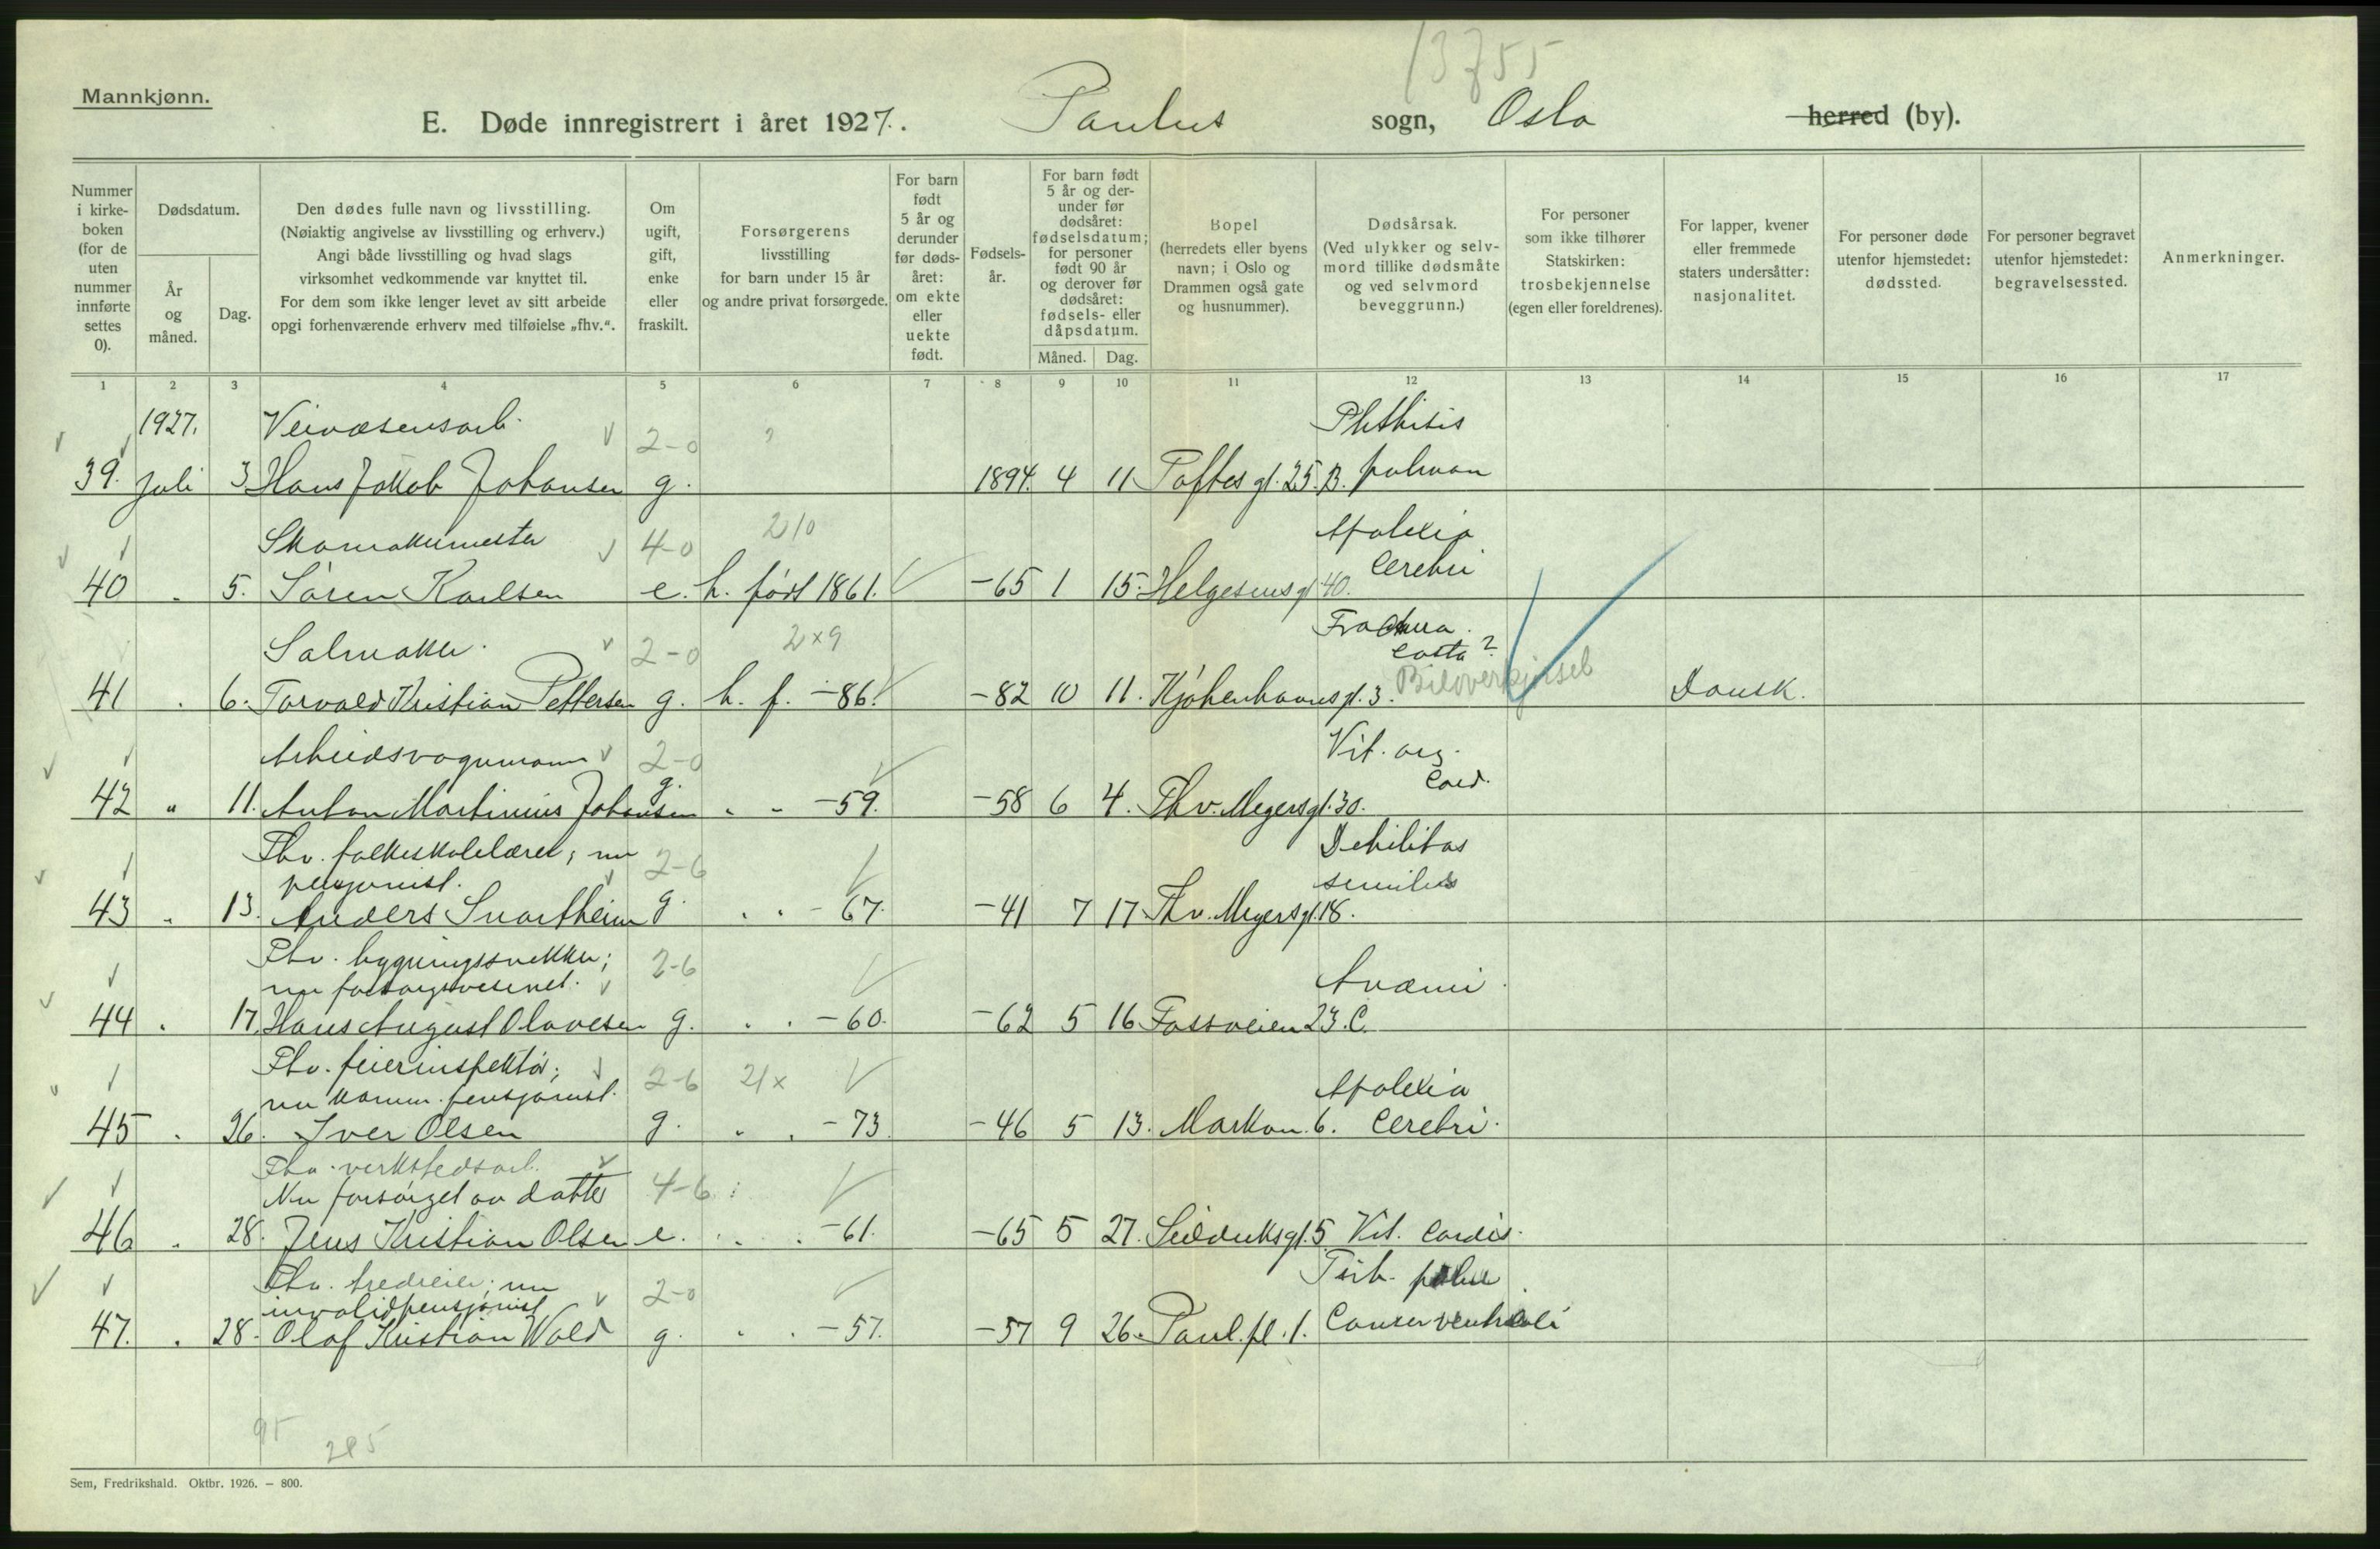 13755
Mannkjønn.
E. Døde innregistrert i året 1927. Paulus sogn, Oslo herred (by).
Nummer i kirke-boken (for de uten nummer innførte settes 0).
Dødsdatum.
År og måned.
Dag.
Den dødes fulle navn og livsstilling.
(Nøiaktig angivelse av livsstilling og erhverv.)
Angi både livsstilling og hvad slags
virksomhet vedkommende var knyttet til.
For dem som ikke lenger levet av sitt arbeide
opgi forhenværende erhverv med tilføielse „fhv.“.
Om ugift, gift, enke eller fraskilt.
Forsørgerens
livsstilling
for barn under 15 år
og andre privat forsørgede.
For barn født 5 år og derunder før døds-året: om ekte eller uekte født.
Fødsels-år.
For barn født 5 år og der-under før dødsåret: fødselsdatum; for personer født 90 år og derover før dødsåret: fødsels- eller dåpsdatum.
Måned. Dag.
Bopel
(herredets eller byens
navn; i Oslo og
Drammen også gate
og husnummer).
Dødsårsak.
(Ved ulykker og selv-
mord tillike dødsmåte
og ved selvmord
beveggrunn.)
For personer
som ikke tilhører
Statskirken:
trosbekjennelse
(egen eller foreldrenes).
For lapper, kvener
eller fremmede
staters undersåtter:
nasjonalitet.
For personer døde
utenfor hjemstedet:
dødssted.
For personer begravet
utenfor hjemstedet:
begravelsessted.
Anmerkninger.
1 2 3 4 5 6 7 8 9 10 11 12 13 14 15 16 17
1927. Veivæsensarb. 2-0 Phthisis
39. juli 3. Hans Jakob Johansen g. 1894. 4 11 Toftes gt. 25.B. pulmon
Skomakermester 4-0 210 Apolexia
40 . 5. Sören Karlsen e. h. född 1861. -65 1 15. Helgesens gt 40. Cerebri
Salmaker. 2-0 2x9 Fractura
costa ?
41 . 6. Torvald Kristian Pettersen g. h. f. -86. -82 10 11. Kjøbenhavns gt. 3. Biloverkjørsel Dansk.
Arbeidsvognmann 2-0 Vit. org.
42 " 11. Anton Martinius Johansen g. . - -59. -58 6 4. Thv. Meyersgt. 30. Cord.
Fhv. folkeskolelærer; nu 2-6 Debilitas
pensjonist. senilis
43 . 13. Anders Snortheim g . . -67. -41 7 17 Thv. Meyersgt. 18.
Fhv. bygningssnekker; 2-6
nu forsorgsvesenet. Anæmi
44 . 17. Hans August Olavesen g. . . -60. -62 5 16 Fossveien 23.C.
Fhv. feierinspektör; 2-6 21x
nu komm. pensjonist. Apolexia
45 . 26. Iver Olsen g. . . -73. -46 5 13. Markvn. 6. Cerebri.
Fhv. verkstedsarb.
Nu forsörget av datter 4-6
46 . 28. Jens Kristian Olsen e. . . -61. -65 5 27. Seilduksgt. 5 Vit. Cordis.
Fhv. bredeier; nu 2-0
invalidpensjonist
47. . 28. Olaf Kristian Wold g. . . -57. -57 9 26. Paul. pl. 1. Cancer ventriculi
95 285
Sem, Fredrikshald. Oktbr. 1926. – 800.